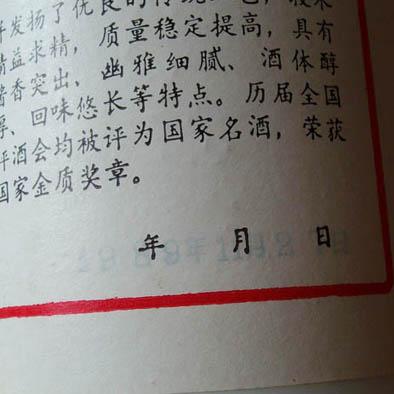 并发扬了优良的传统
精益求精，质量稳定提高，具有
酱香突出、幽雅细腻、酒体醇
厚、回味悠长等特点。历届全国
评酒会均被评为国家名酒，荣获
国家金质奖章。
年 月 日